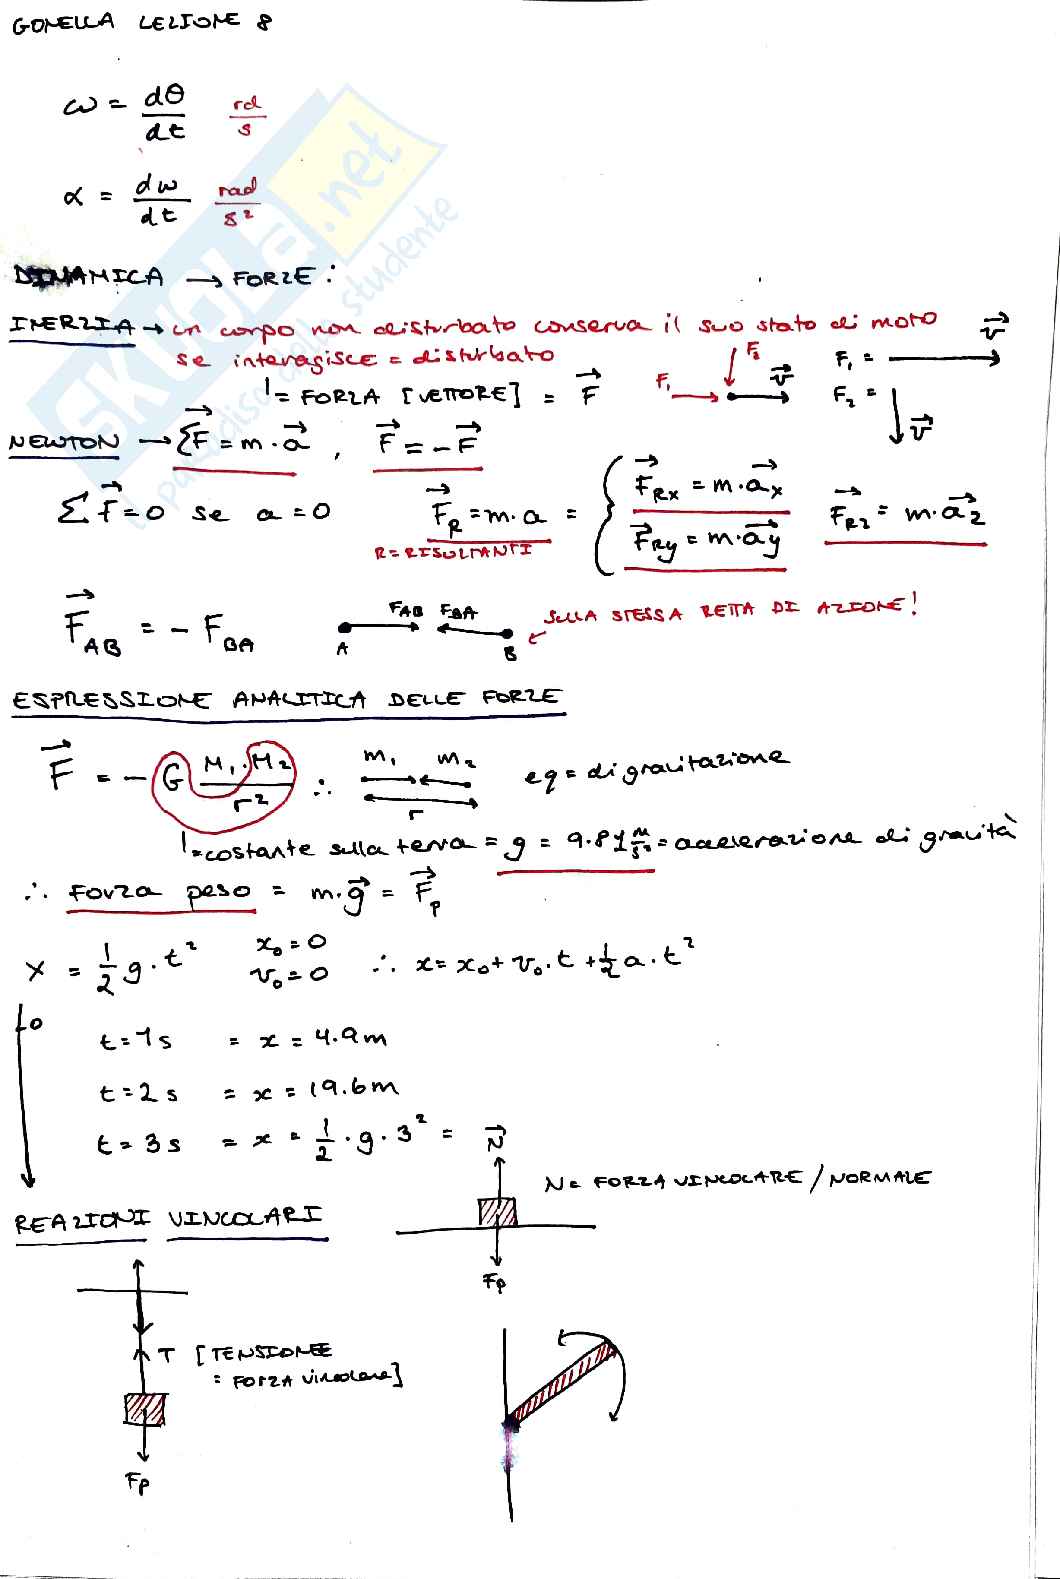 GONELLA LEZIONE 8
ω = dθ/dt rd/s
α = dω/dt rad/s²
DINAMICA → FORZE:
INERZIA → un corpo non disturbato conserva il suo stato di moto
se interagisce = disturbato
!= FORZA [VETTORE] = F⃗
F₁ F₂ v⃗
F₁ = v⃗
F₂ = v⃗
NEWTON → ΣF⃗ = m·a⃗ , F⃗ = -F⃗
ΣF⃗ = 0 se a = 0 F⃗_R = m·a = { F⃗_Rx = m·a⃗_x F⃗_Ry = m·a⃗_y F⃗_Rz = m·a⃗_z
R = RISULTANTI
F⃗_AB = - F_BA A F_AB F_BA B SULLA STESSA RETTA DI AZIONE!
ESPRESSIONE ANALITICA DELLE FORZE
F⃗ = - G M₁·M₂/r² ∴ m₁ m₂ r eq = di gravitazione
!= costante sulla terra = g = 9.81 m/s² = accelerazione di gravità
∴ Forza peso = m·g⃗ = F⃗_p
x = 1/2 g·t² x₀ = 0 v₀ = 0 ∴ x = x₀ + v₀·t + 1/2 a·t²
0
t = 1s = x = 4.9m
t = 2s = x = 19.6m
t = 3s = x = 1/2 · g · 3² =
N⃗
N = FORZA VINCOLARE / NORMALE
Fp
REAZIONI VINCOLARI
T [TENSIONE
= FORZA vincolare]
Fp
SKUOLA.net
il paradiso dello studente